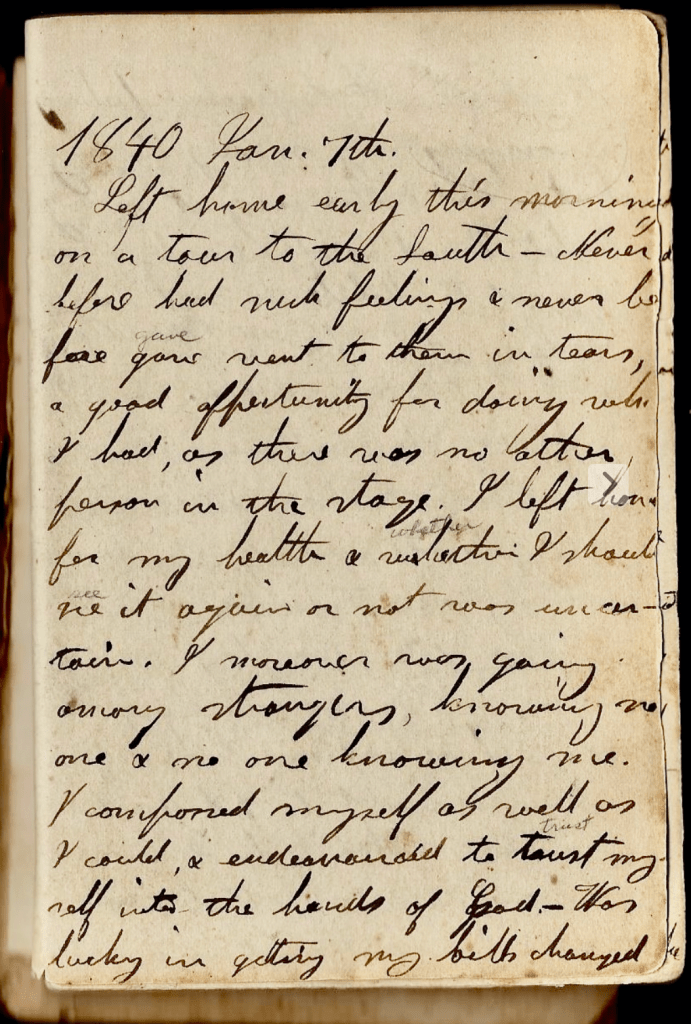 1840 Jan. 7th.
Left home early this morning
on a tour to the South – Never
before had such feelings & never be
gave
fore gave vent to them in tears,
a good oppertunity for doing which
I had, as there was no other
person in the stage. I left home
whether
for my health & whether I should
see
see it again or not was uncer-
tain. I moreover was going
among strangers, knowing no
one & no one knowing me.
I composed myself as well as
trust
I could, & endeavoured to trust my-
self into the hands of God. – Was
lucky in getting my bills changed